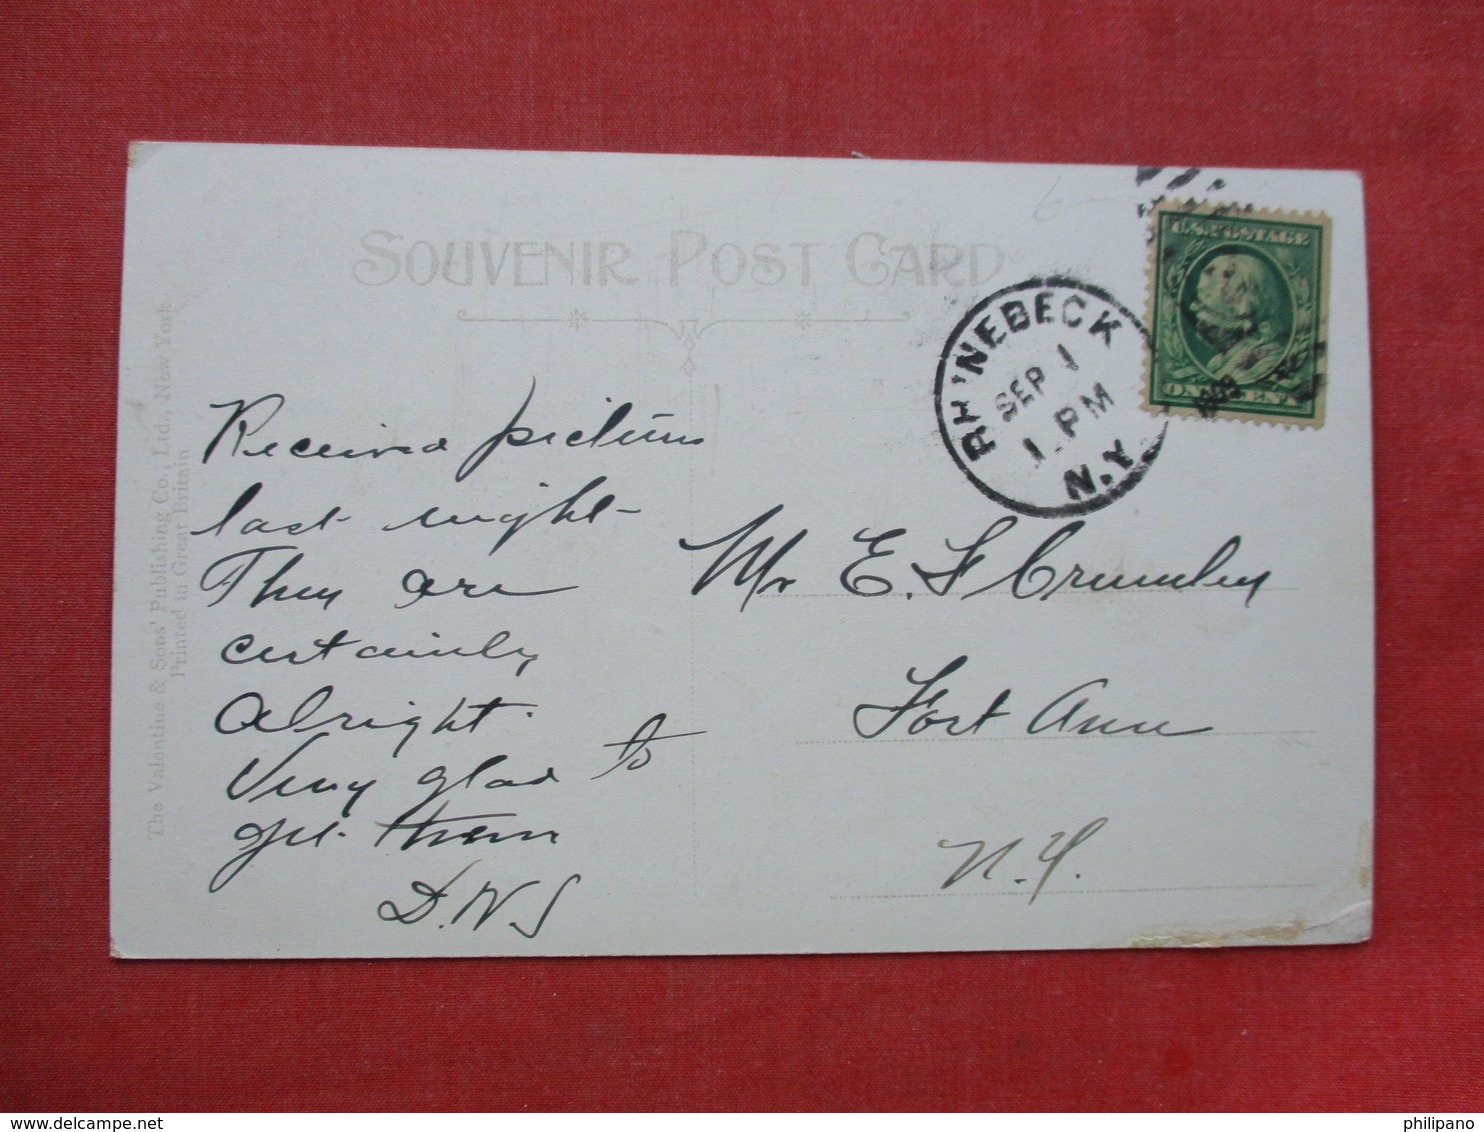 SOUVENIR POST CARD
The Valentine & Sons' Publishing Co., Ltd., New York
Printed in Great Britain
RHINEBECK
SEP 1
1 - PM
N.Y.
1909
U.S. POSTAGE
ONE CENT
6-
Received pictures
last night-
They are
certainly
alright.
Very glad to
get them
D.W.S
Mr E. F Crumley
Fort Ann
N.Y.
delcampe.net
philipano